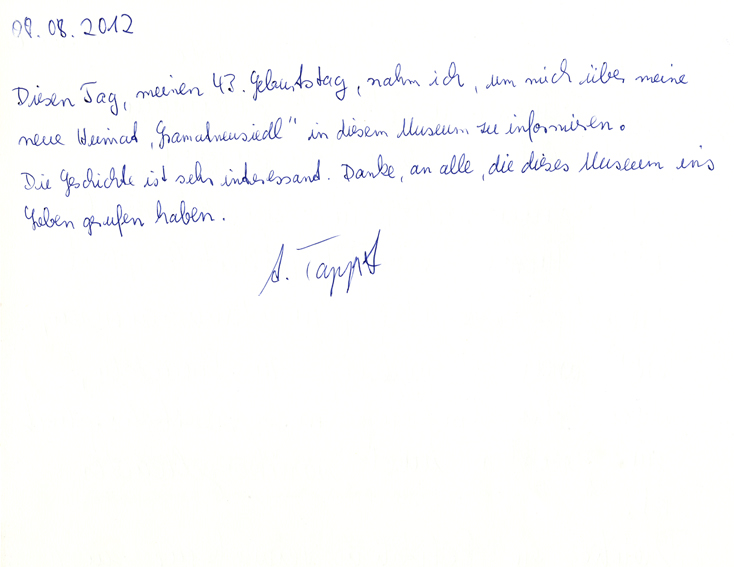 08.08.2012
Diesen Tag, meinen 43. Geburtstag, nahm ich, um mich über meine
neue Heimat „Gramatneusiedl" in diesem Museum zu informieren.
Die Geschichte ist sehr interessant. Danke, an alle, die dieses Museum ins
Leben gerufen haben.
A.